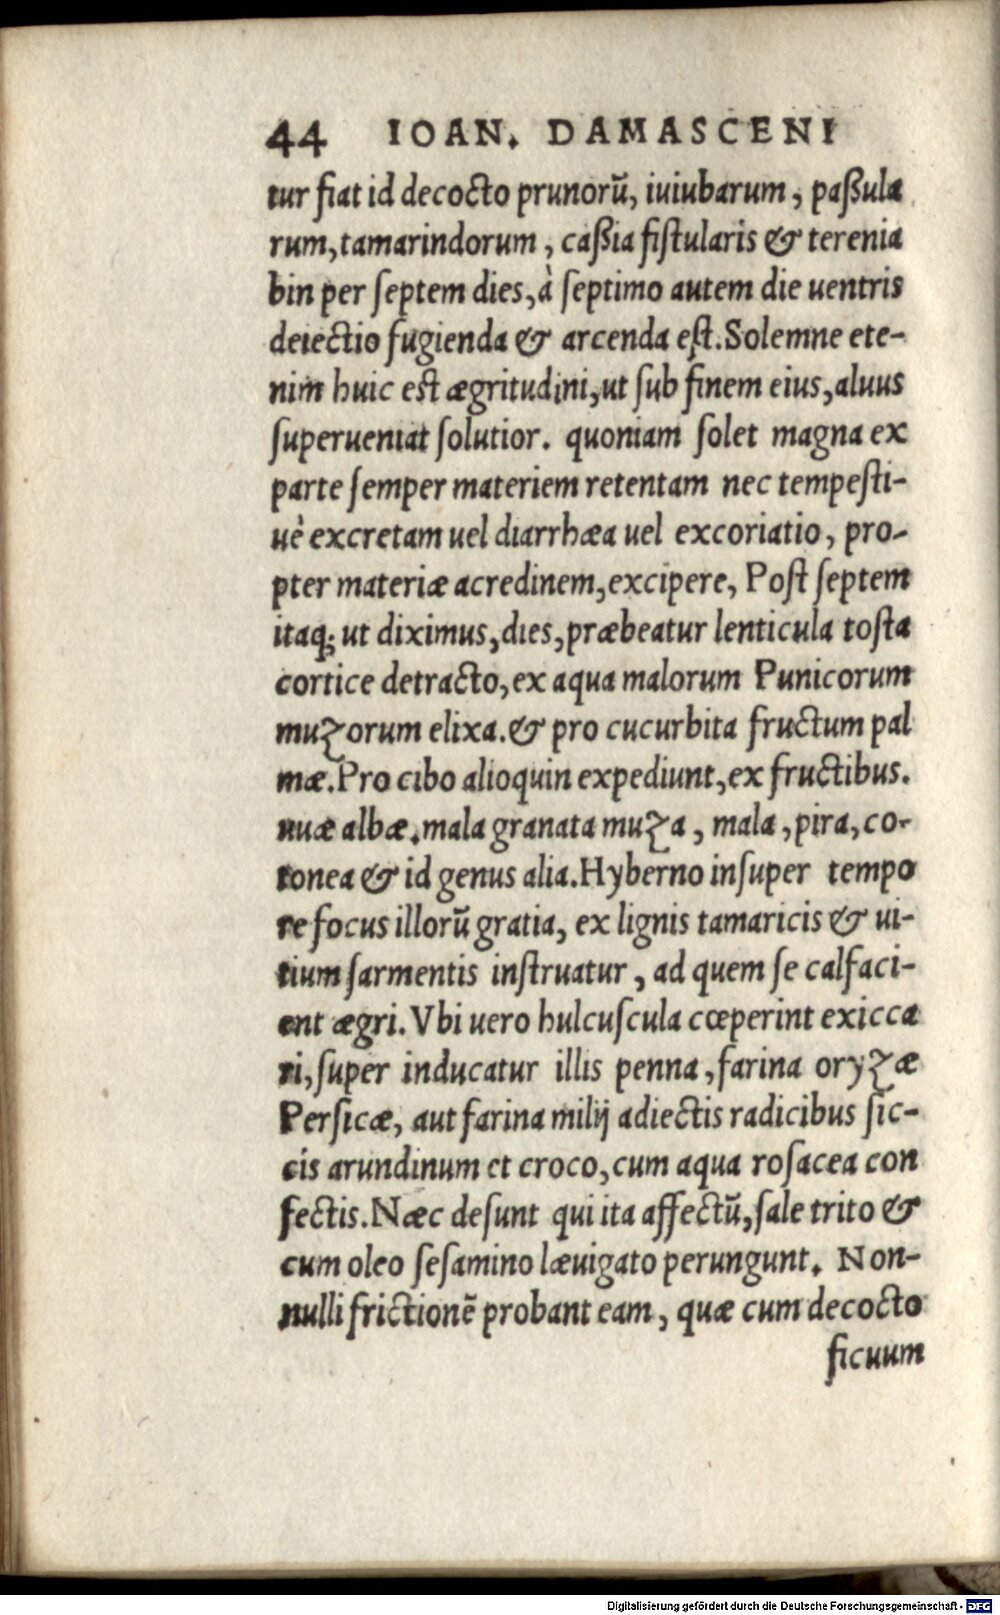 44 IOAN. DAMASCENI
tur fiat id decocto prunorũ, iuiubarum, paßula
rum, tamarindorum, caßia fistularis & terenia
bin per septem dies, à septimo autem die uentris
deiectio fugienda & arcenda est. Solemne ete-
nim huic est ægritudini, ut sub finem eius, aluus
superueniat solutior. quoniam solet magna ex
parte semper materiem retentam nec tempesti-
uè excretam uel diarrhæa uel excoriatio, pro-
pter materiæ acredinem, excipere, Post septem
itaq; ut diximus, dies, præbeatur lenticula tosta
cortice detracto, ex aqua malorum Punicorum
muzorum elixa. & pro cucurbita fructum pal
mæ. Pro cibo alioquin expediunt, ex fructibus.
uuæ albæ. mala granata muza, mala, pira, co-
tonea & id genus alia. Hyberno insuper tempo
re focus illorũ gratia, ex lignis tamaricis & ui-
tium sarmentis instruatur, ad quem se calfaci-
ent ægri. Vbi uero hulcuscula cœperint exicca
ri, super inducatur illis penna, farina oryzæ
Persicæ, aut farina milij adiectis radicibus sic-
cis arundinum et croco, cum aqua rosacea con
fectis. Næc desunt qui ita affectũ, sale trito &
cum oleo sesamino læuigato perungunt. Non-
nulli frictionẽ probant eam, quæ cum decocto
ficuum
Digitalisierung gefördert durch die Deutsche Forschungsgemeinschaft - DFG